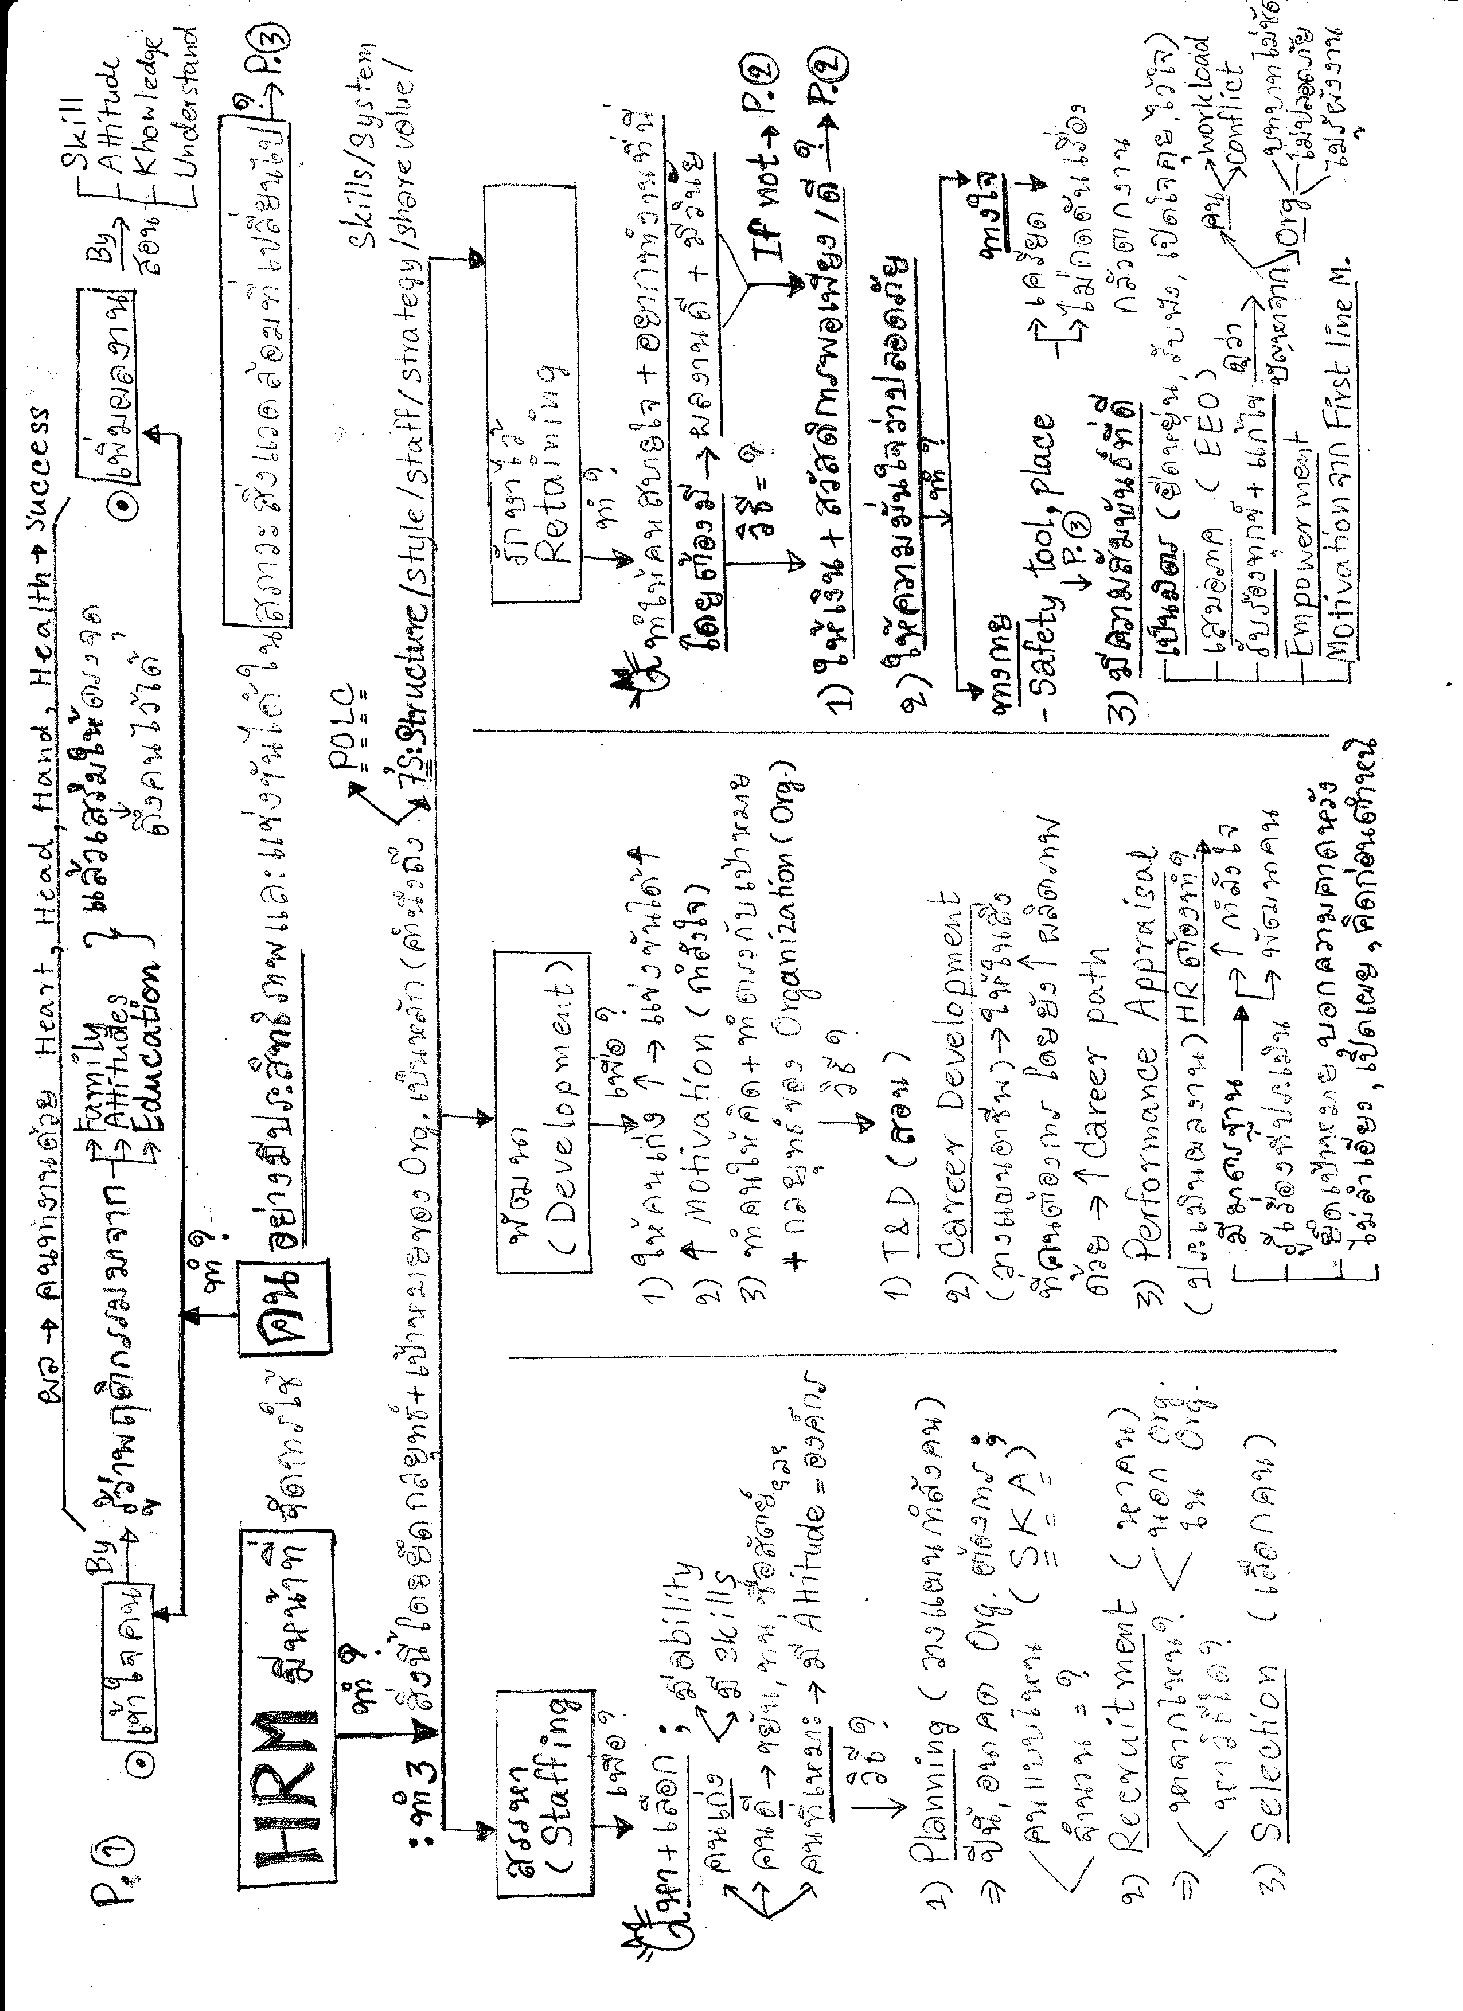 P.①
ผล → คนทำงานด้วย Heart, Head, Hand, Health → Success
⊙ เข้าใจคน By → รู้ว่าพฤติกรรมมาจาก
Family
Attitudes
Education
} แล้วเสริมให้ตรงจุด
ดึงคนไว้ได้
⊙ เพิ่มผลงาน By → สอน
Skill
Attitude
Knowledge
Understand
ทำ ?
HRM มีหน้าที่ จัดการใช้ คน อย่างมีประสิทธิภาพและแข่งขันได้ใน สภาวะสิ่งแวดล้อมที่เปลี่ยนไป ? → P.③
ทำ ?
POLC
: ทำ 3 สิ่งนี้โดยยึดกลยุทธ์ + เป้าหมายของ Org. เป็นหลัก (คำนึงถึง 7's: Structure/style/staff/strategy/share value/
Skills/System
สรรหา
(Staffing
เพื่อ ?
หา + เลือก ;
คนเก่ง
มี ability
มี skills
คนดี → ขยัน, ทน, ซื่อสัตย์ ฯลฯ
คนที่เหมาะ → มี Attitude = องค์กร
วิธี ?
1) Planning (วางแผนกำลังคน)
⇒ ปีนี้, อนาคต Org. ต้องการ ;
คนแบบไหน (SKA)
จำนวน = ?
2) Recruitment (หาคน)
⇒ หาจากไหน? < นอก Org.
ใน Org.
หาวิธีใด?
3) Selection (เลือกคน)
พัฒนา
(Development)
เพื่อ ?
1) ให้คนเก่ง ↑ → แข่งขันได้ ↑
2) ↑ Motivation (กำลังใจ)
3) ทำคนให้คิด + ทำตรงกับเป้าหมาย
+ กลยุทธ์ของ Organization (Org.)
วิธี ?
1) T&D (สอน)
2) Career Development
(วางแผนอาชีพ) → ให้ในสิ่ง
ที่คนต้องการ โดยยัง ↑ ผลิตภาพ
ด้วย → ↑ Career path
3) Performance Appraisal
(ประเมินผลงาน) HR ต้องทำ ?
มีมาตรฐาน → ↑ กำลังใจ
รู้เรื่องที่ประเมิน → พัฒนาคน
ยึดเป้าหมาย, บอกความคาดหวัง
ไม่ลำเอียง, เปิดเผย, คิดก่อนตำหนิ
รักษาไว้
Retaining
ทำ ?
ทำให้คนสบายใจ + อยากทำงานที่นี่
โดยต้องมี → ผลงานดี + มีวินัย
วิธี = ?
If not → P.②
1) ให้เงิน + สวัสดิการพอเพียง/ดี ? → P.②
2) ให้ความมั่นใจว่าปลอดภัย
ทำ ?
ทางกาย
- Safety tool, place
↓ P.③
ทางใจ
เครียด →
ไม่กดดันเรื่อง
กลัวตกงาน
3) มีความสัมพันธ์ที่ดี
เป็นมิตร (ยืดหยุ่น, รับฟัง, เปิดใจคุย, ไว้ใจ)
เสมอภาค (EEO)
รับร้องทุกข์ + แก้ไข ดูว่า ปัญหาจาก
คน
workload
conflict
Org
บทบาทไม่ชัด
ไม่ปลอดภัย
ไม่รู้ผังงาน
Empowerment
Motivation จาก First line M.